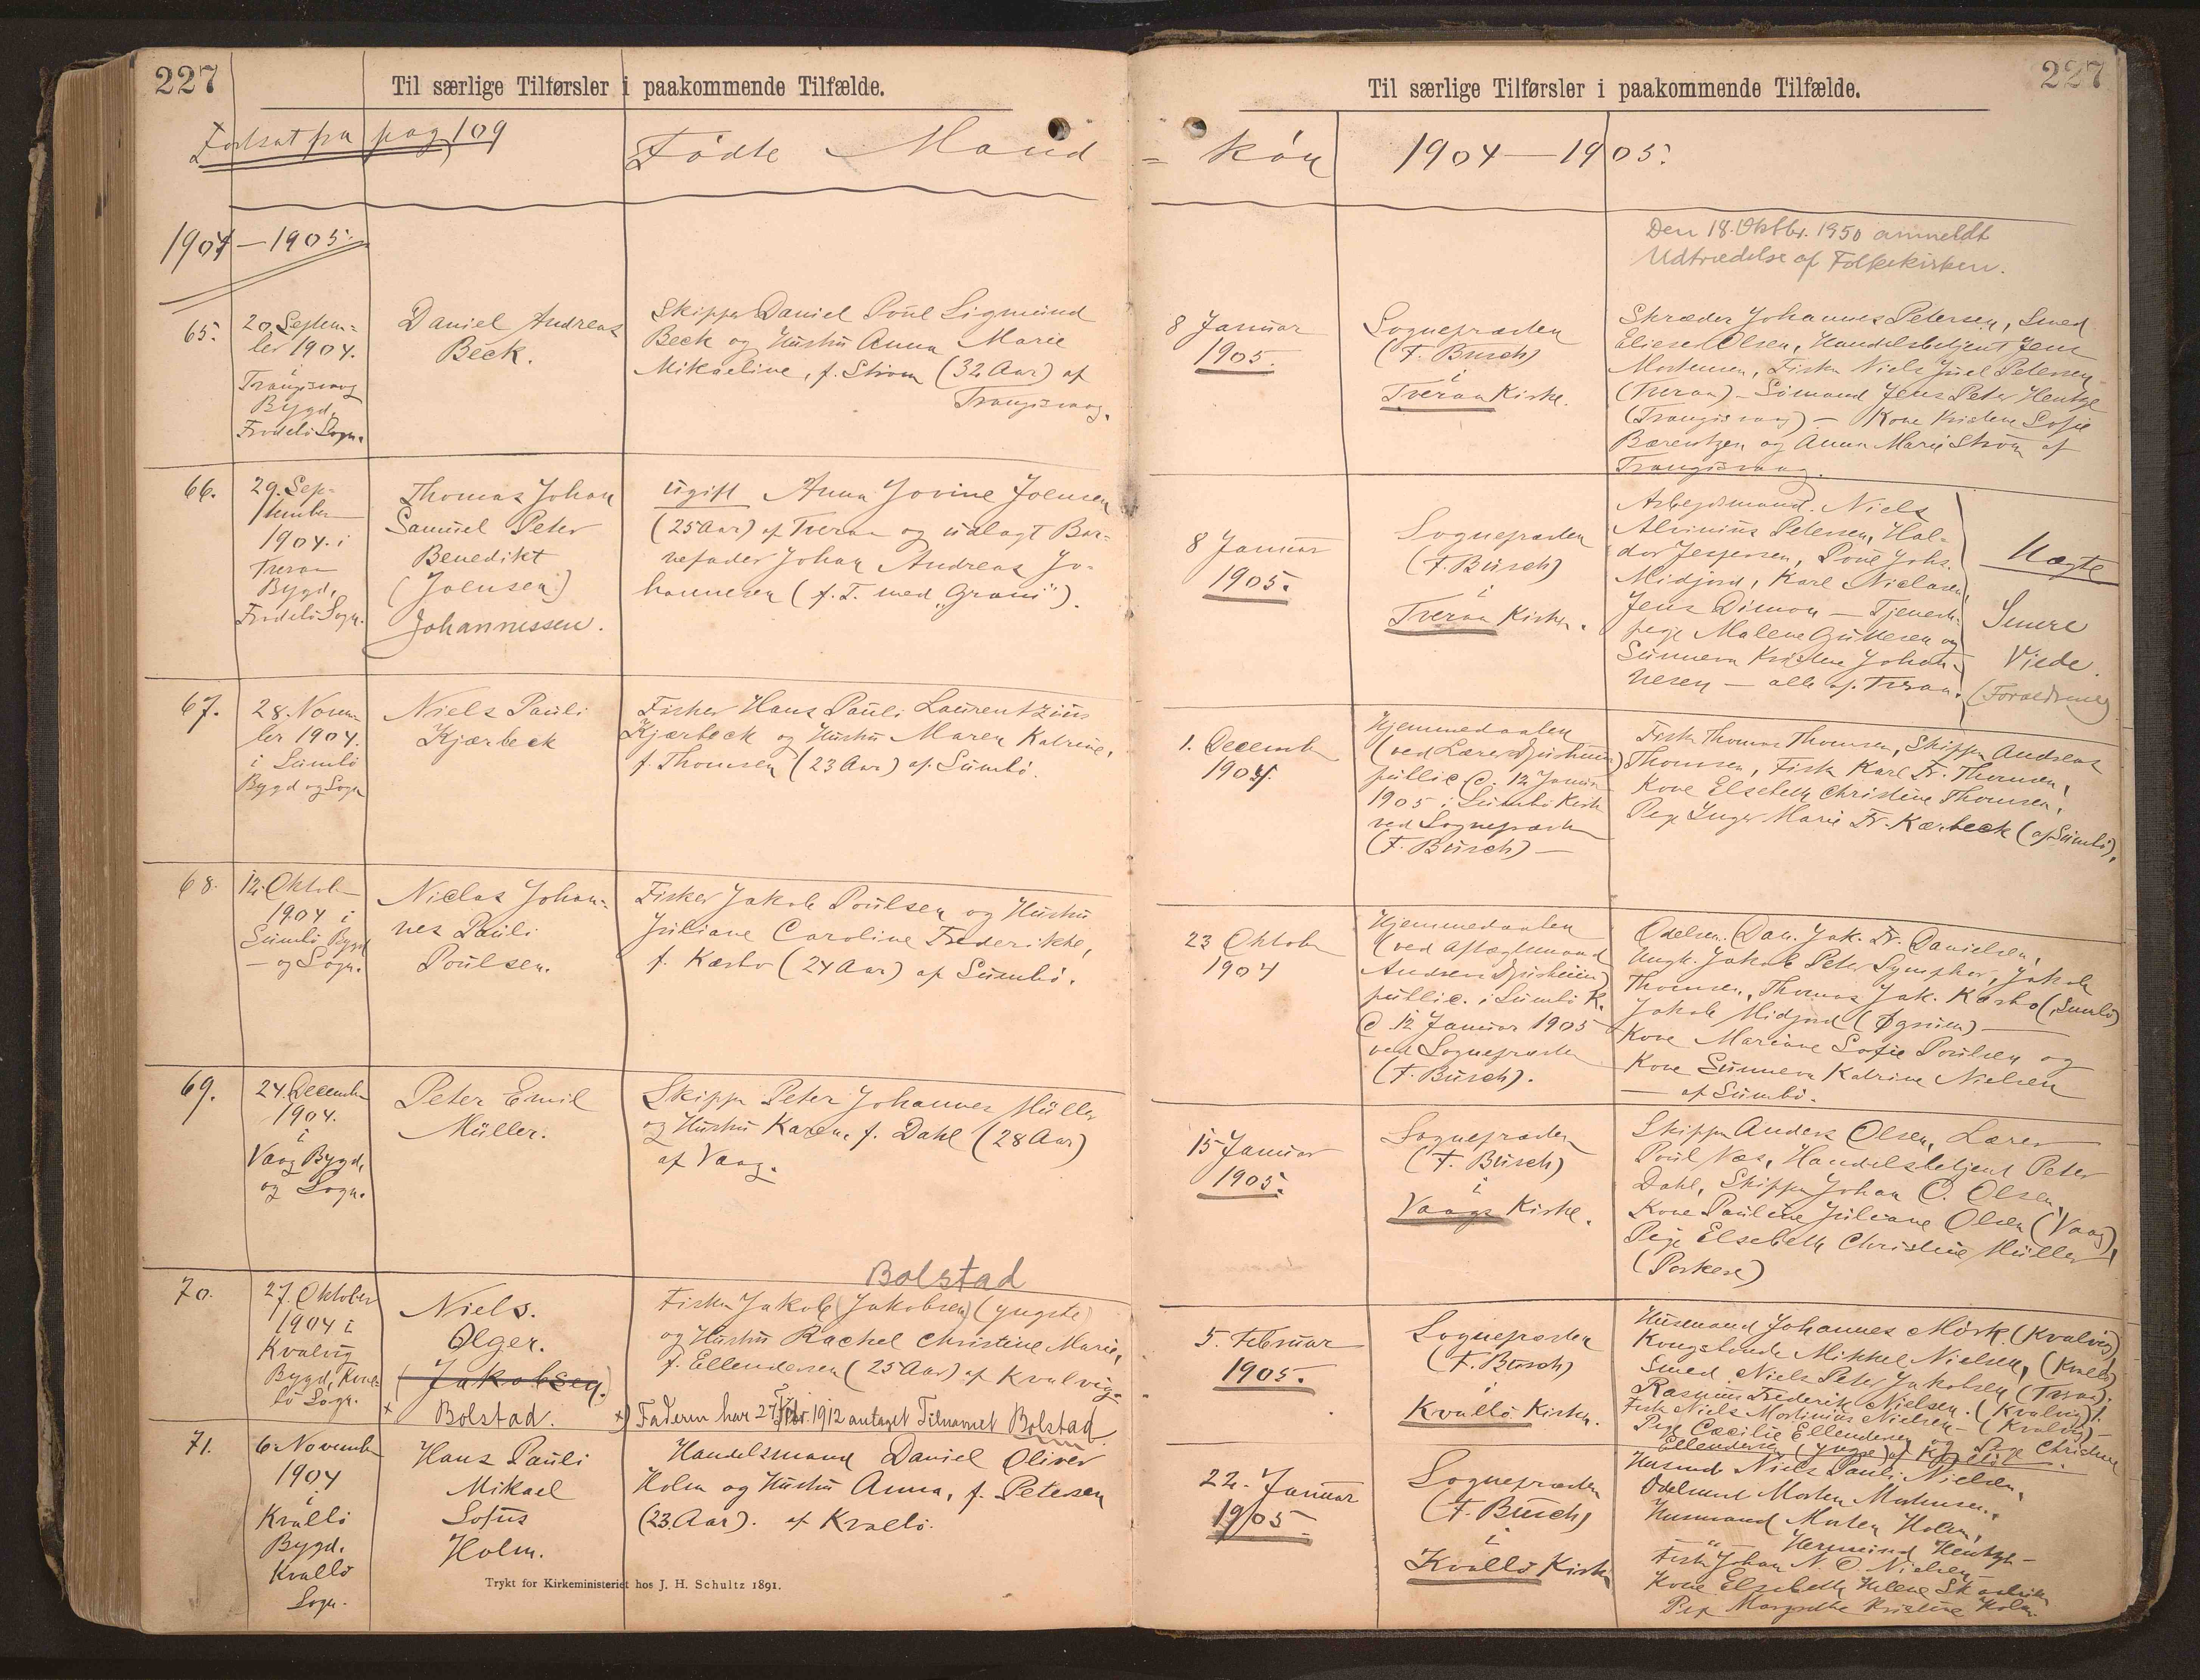 227
Til særlige Tilførsler i paakommende Tilfælde.
Fortsat fra pag 109
Födte Mand
1904-1905.
65.
20 Septem=
ber 1904.
i
Trangisvaag
Bygd,
Frodebö Sogn.
Daniel Andreas
Beck.
Skipper Daniel Poul Sigmund
Beck og Hustru Anna Marie
Mikaeline, f. Ström (32 Aar) af
Trangisvaag.
66.
29. Sep=
tember
1904. i
Tveraa
Bygd,
Frodebö Sogn.
Thomas Johan
Samuel Peter
Benedikt
(Joensen)
Johannessen.
ugift Anna Jovine Joensen
(25 Aar) af Tveraa og udlagt Bar=
nefader Johan Andreas Jo-
hannesen (f. T. med "Grani").
67.
28. Novem-
ber 1904.
i Sumbö
Bygd og Sogn
Niels Pauli
Kjærbeck
Fisker Hans Pauli Laurentzius
Kjærbeck og Hustru Maren Katrine,
f. Thomsen (23 Aar) af Sumbö.
68.
12. Oktob-
1904 i
Sumbö Bygd
- og Sogn.
Niclas Johan=
nes Pauli
Poulsen.
Fisker Jakob Poulsen og Hustru
Juliane Caroline Frederikke,
f. Kærbo (24 Aar) af Sumbö.
69.
24. December
1904.
i
Vaag Bygd,
og Sogn.
Peter Emil
Müller.
Skipper Peter Johannes Müller
og Hustru Karen, f. Dahl (28 Aar)
af Vaag.
70.
27. Oktober
1904 i
Kvalvig
Bygd, Kval=
bö Sogn.
Niels.
Olger.
(Jakobsen.)
x Bolstad.
Bolstad
Fisker Jakob (Jakobsen) (yngste)
og Hustru Rachel Christine Marie,
f. Ellendersen (25 Aar) af Kvalvig.
x) Faderen har 27 Febr. 1912 antaget Tilnavnet Bolstad.
71.
6. November
1904
i
Kvalbö
Bygd.
Kvalbö
Sogn.
Hans Pauli
Mikael
Sofus
Holm.
Handelsmand Daniel Oliver
Holm og Hustru Anna, f. Petersen
(23 Aar). af Kvalbö.
Trykt for Kirkeministeriet hos J. H. Schultz 1891.
227
Til særlige Tilførsler i paakommende Tilfælde.
= kön 1904-1905.
Den 18. Oktbr. 1950 anmeldt
Udtrædelse af Folkekirken.
8 Januar
1905.
Sognepræsten
(F. Busch)
i
Tveraa Kirke.
Skræder Johannes Petersen, Smed
Elieser Olsen, Handelsbetjent Jens
Mortensen, Fisker Niels Juel Petersen
(Tveraa) - Sömand Jens Peter Hentze
(Trangisvaag) - Kone Kristine Sofie
Bærentzen og Anna Marie Ström af
Trangisvaag.
8 Januar
1905.
Sognepræsten
(F. Busch)
i
Tveraa Kirke.
Arbejdsmand Niels
Alvinius Petersen, Hal-
dor Jespersen, Poul Johs.
Midjord, Karl Niclasen,
Jens Dimon - Tjeneste-
pige Malene Guttesen og
Sunneva Kristine Johan-
nesen - alle af Tveraa.
Uægte
Senere
Viede.
(Forældrene)
1. December
1904.
Hjemmedøbt
(ved Lærer Djurhuus)
public. d. 12 Januar
1905 i Sumbö Kirke
ved Sognepræsten
(F. Busch) -
Fisker Thomas Thomsen, Skipper Andreas
Thomsen, Fisker Karl Fr. Thomsen,
Kone Elsebeth Christine Thomsen,
Pige Inger Marie Fr. Kærbeck (af Sumbö).
23 Oktober
1904
Hjemmedøbt
(ved Aftægtsmand
Andreas Djurhuus)
public. i Sumbö K.
d. 12 Januar 1905
ved Sognepræsten
(F. Busch).
Odelsm. Dan. Jak. Fr. Danielsen,
Ungk. Jakob Peter Symphor, Jakob
Thomsen, Thomas Jak. Kærbo (Sumbö)
Jakob Midjord (Øgrum) -
Kone Mariane Sofie Poulsen og
Kone Sunneva Katrine Nielsen
- af Sumbö.
15 Januar
1905.
Sognepræsten
(F. Busch)
i
Vaags Kirke.
Skipper Anders Olsen, Lærer
Poul Næs, Handelsbetjent Peter
Dahl, Skipper Johan O. Olsen,
Kone Pauline Juliane Olsen (Vaag),
Pige Elsebeth Christine Müller
(Porkere)
5. Februar
1905.
Sognepræsten
(F. Busch)
i
Kvalbö Kirke.
Husmand Johannes Mörk (Kvalvig)
Kongsbonde Mikkel Nielsen, (Kvalbö)
Smed Niels Peter Jakobsen (Tveraa).
Rasmus Frederik Nielsen. (Kvalvig).
Fisker Niels Mortinius Nielsen - (Kvalvig) -
Pige Cæcilie Ellendersen og Pige Christine
Ellendersen (yngre) af Kvalbö.
22. Januar
1905.
Sognepræsten
(F. Busch)
i
Kvalbö Kirke
Husmd Niels Pauli Nielsen,
Odelsmd Morten Mortensen,
Husmand Morten Holm,
- " - Hermund Hentze -
Fisker Johan N. O. Nielsen -
Kone Elsebeth Helene
Pige Margrethe Kristine Holm.